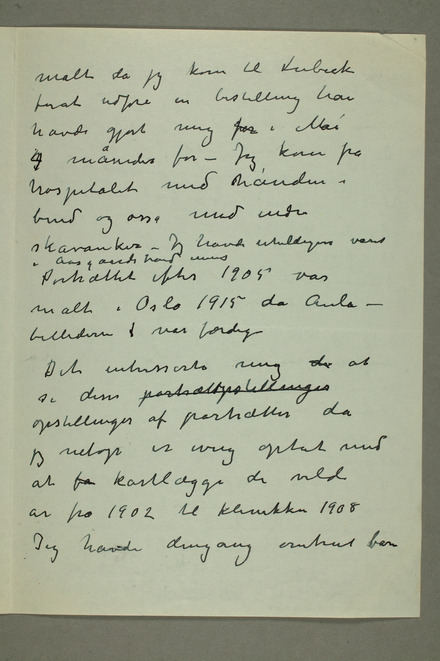 malt da jeg kom til Lübeck
forat udføre en bestilling han
havde gjort mig for i Mai
4 måneder før – Jeg kom på
hospitalet med hånden i
bind og også med indre
skavanker – Jeg havde uheldigvis været
i Aasgaardstrand
Portrættet efter 1905 var
malt i Oslo 1915 da Aula –
billederne var færdig
Det interesserte mig de at
se disse portrætopstillinger
opstillinger af portrætter da
jeg netop er ivrig optat med
at kartlægge de vilde
år fra 1902 til klinikken 1908
Jeg havde dengang omtrent bare